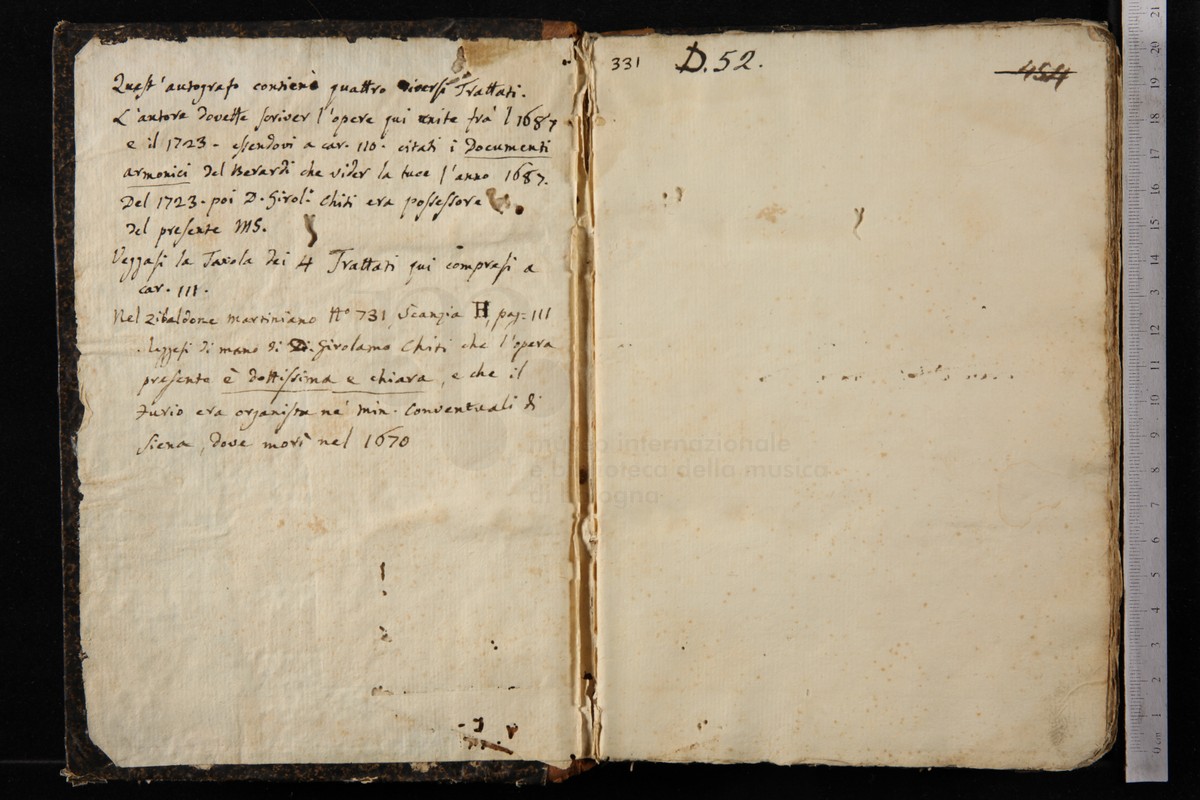 Quest' autografo contiene quattro diversi Trattati.
L'autore dovette scriver l'opere qui unite frà 'l 1687
e il 1723 - essendovi a car. 110. citati i Documenti
armonici del Berardi che vider la luce l'anno 1687.
Del 1723. poi D. Girol.º Chiti era possessore
del presente MS.
Veggasi la Tavola dei 4 Trattati qui compresi a
car. 111.
Nel zibaldone martiniano Nº 731 Scanzia H, pag: 111
leggesi di mano di D. Girolamo Chiti che l'opera
presente è dottissima e chiara, e che il
era organista ne' min. Conventuali di
Siena, dove morì nel 1670
331 D.52.
454
museo internazionale
e biblioteca della musica
di bologna
0 cm 1 2 3 4 5 6 7 8 9 10 11 12 13 14 15 16 17 18 19 20 21